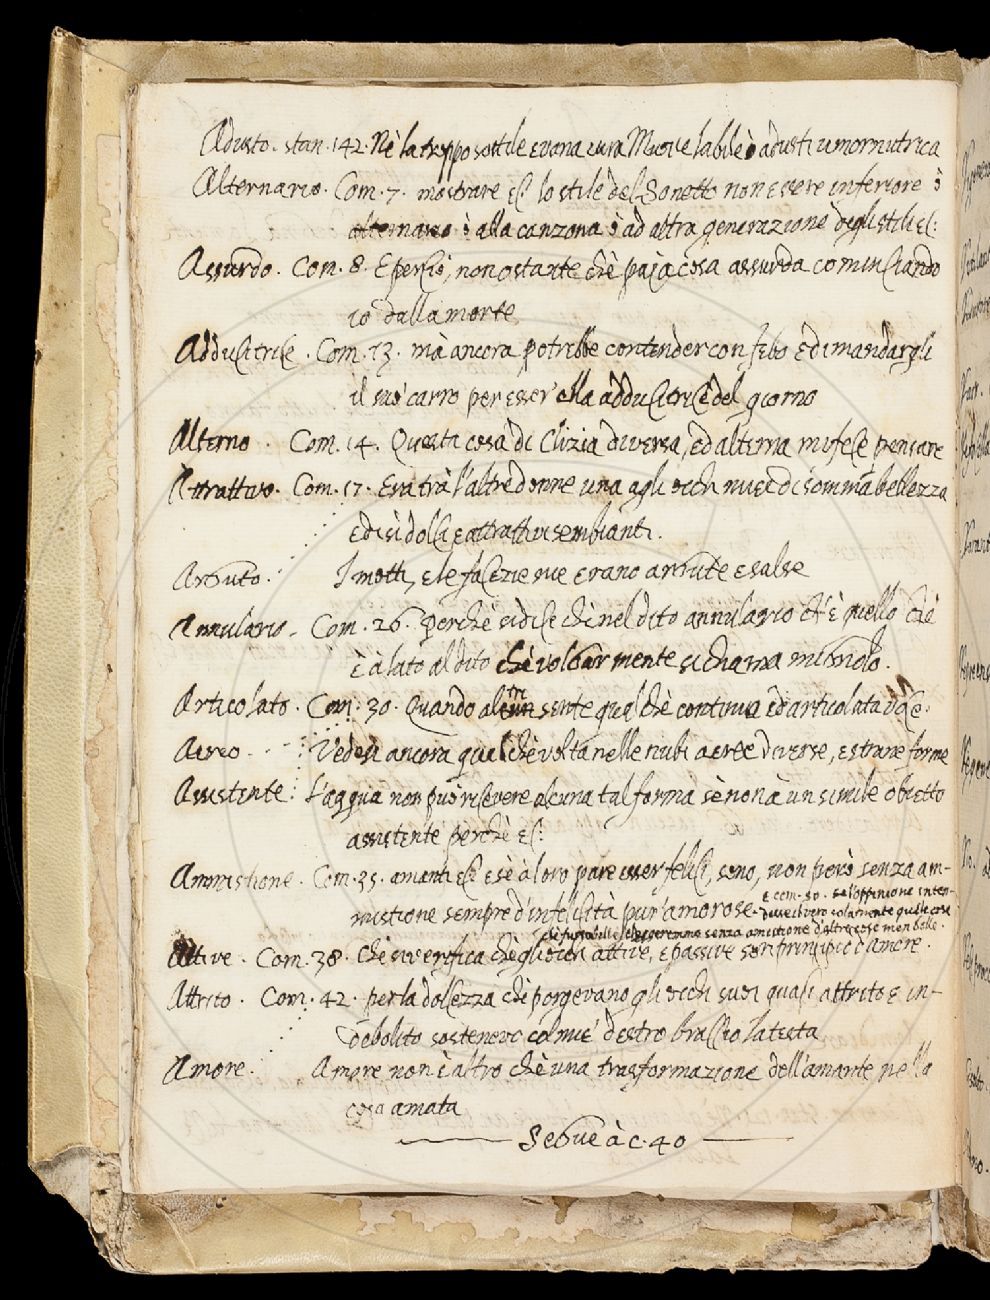 Adusto. stan. 142. Nè la troppo sottile e vana cura Muove labile ò adusti umor nutrica
Alternario. Com. 7. mostrare ec lo stile del Sonetto non essere inferiore ò
alternario ò alla canzona ò ad altra generazione degli stili ec:
Assurdo. Com. 8. E perciò, non ostante chè paja cosa assurda cominciando
io dalla morte
Adducitrice. Com. 13. mà ancora potrebbe contender con febo e dimandargli
il suo carro per esser' ella adducitrice del giorno
Alterno. Com. 14. Questa cosa di Clizia diversa, ed alterna mi fece pensare
Attrattivo. Com. 17. Era trà l'altre donne una agli occhi nuei di somma bellezza
e di sì dolci e attrattivi sembianti.
Arguto. I motti, e le facezie sue erano argute e salse
Annulario. Com. 26. Perchè si dice chè nel dito annulario ch'è quello chè
è à lato al dito chè volgarmente si chiama mignolo.
Articolato. Com. 30. Quando altri sente qualchè continua ed articolata voce.
Aereo. Vedesi ancora qualchè volta nelle nubi aeree diverse, e strane forme
Assistente. L'acqua non può ricevere alcuna tal forma sè non à un simile obietto
assistente perchè ec:
Ammistione. Com. 35. amanti ec e sè à loro pare esser felici, sono, non però senza am-
mistione sempre d'infelicità pur'amorose. e com. 30. se l'oppenione inten-
desse il vero solamente quelle cose
che fussin belle eleggeremmo senza amistione d'altre cose men belle.
Attive. Com. 38. chè si verifica chè gli occhi attive, e passive son principio d'amore.
Attrito. Com. 42. per la dolcezza chè porgevano gli occhi suoi quasi attrito e in-
debolito sostenevo col mie' destro braccio la testa
Amore. Amore non è altro chè una trasformazione dell'amante nella
cosa amata
Segue à c. 40